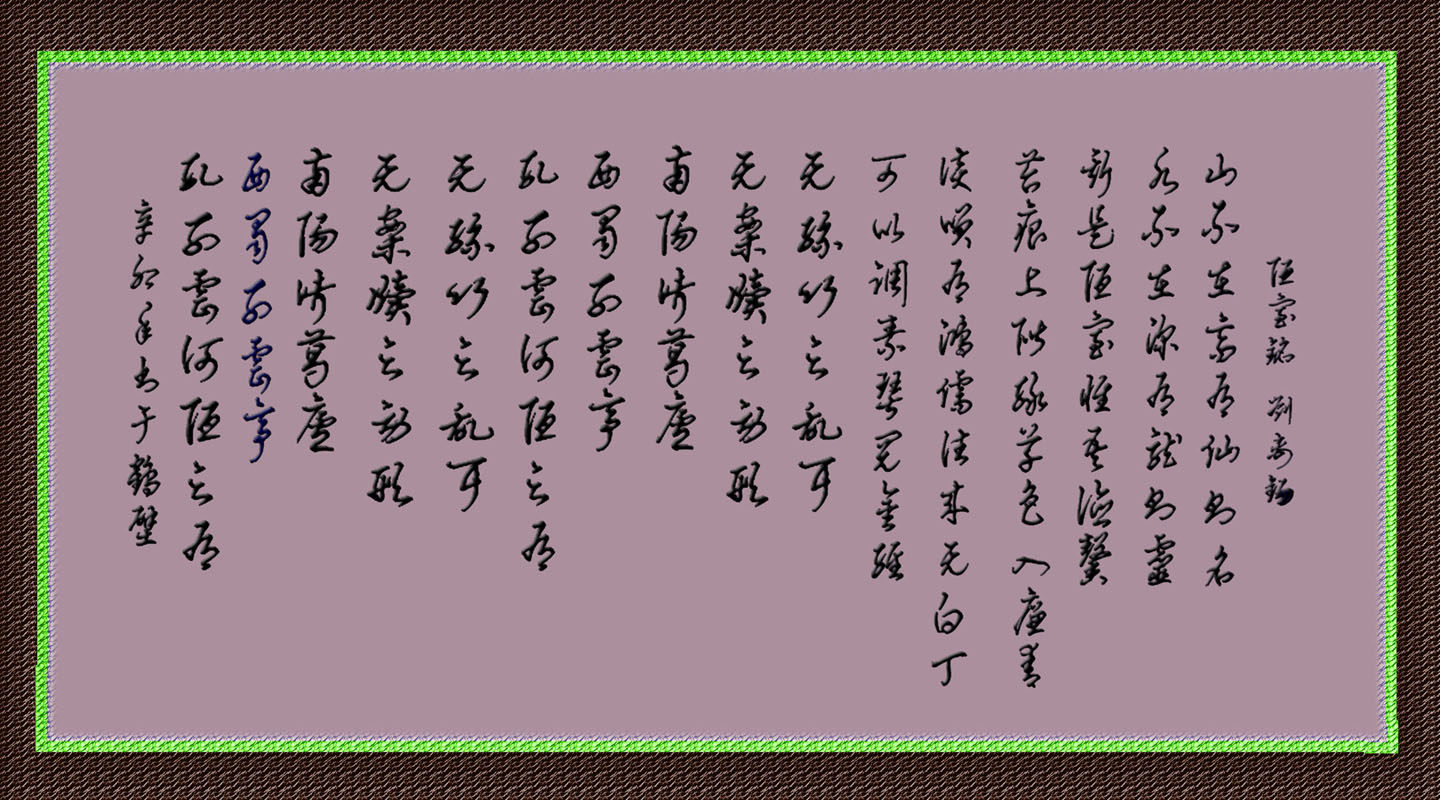 陋室铭 刘禹锡
山不在高有仙则名
水不在深有龙则靈
斯是陋室惟吾德馨
苔痕上阶绿草色入廉青
谈笑有鸿儒往来无白丁
可以调素琴阅金经
无丝竹之乱耳
无案牍之劳形
南阳诸葛庐
西蜀子雲亭
孔子雲何陋之有
无丝竹之乱耳
无案牍之劳形
南阳诸葛庐
西蜀子雲亭
孔子雲何陋之有
辛卯年书于鹤壁